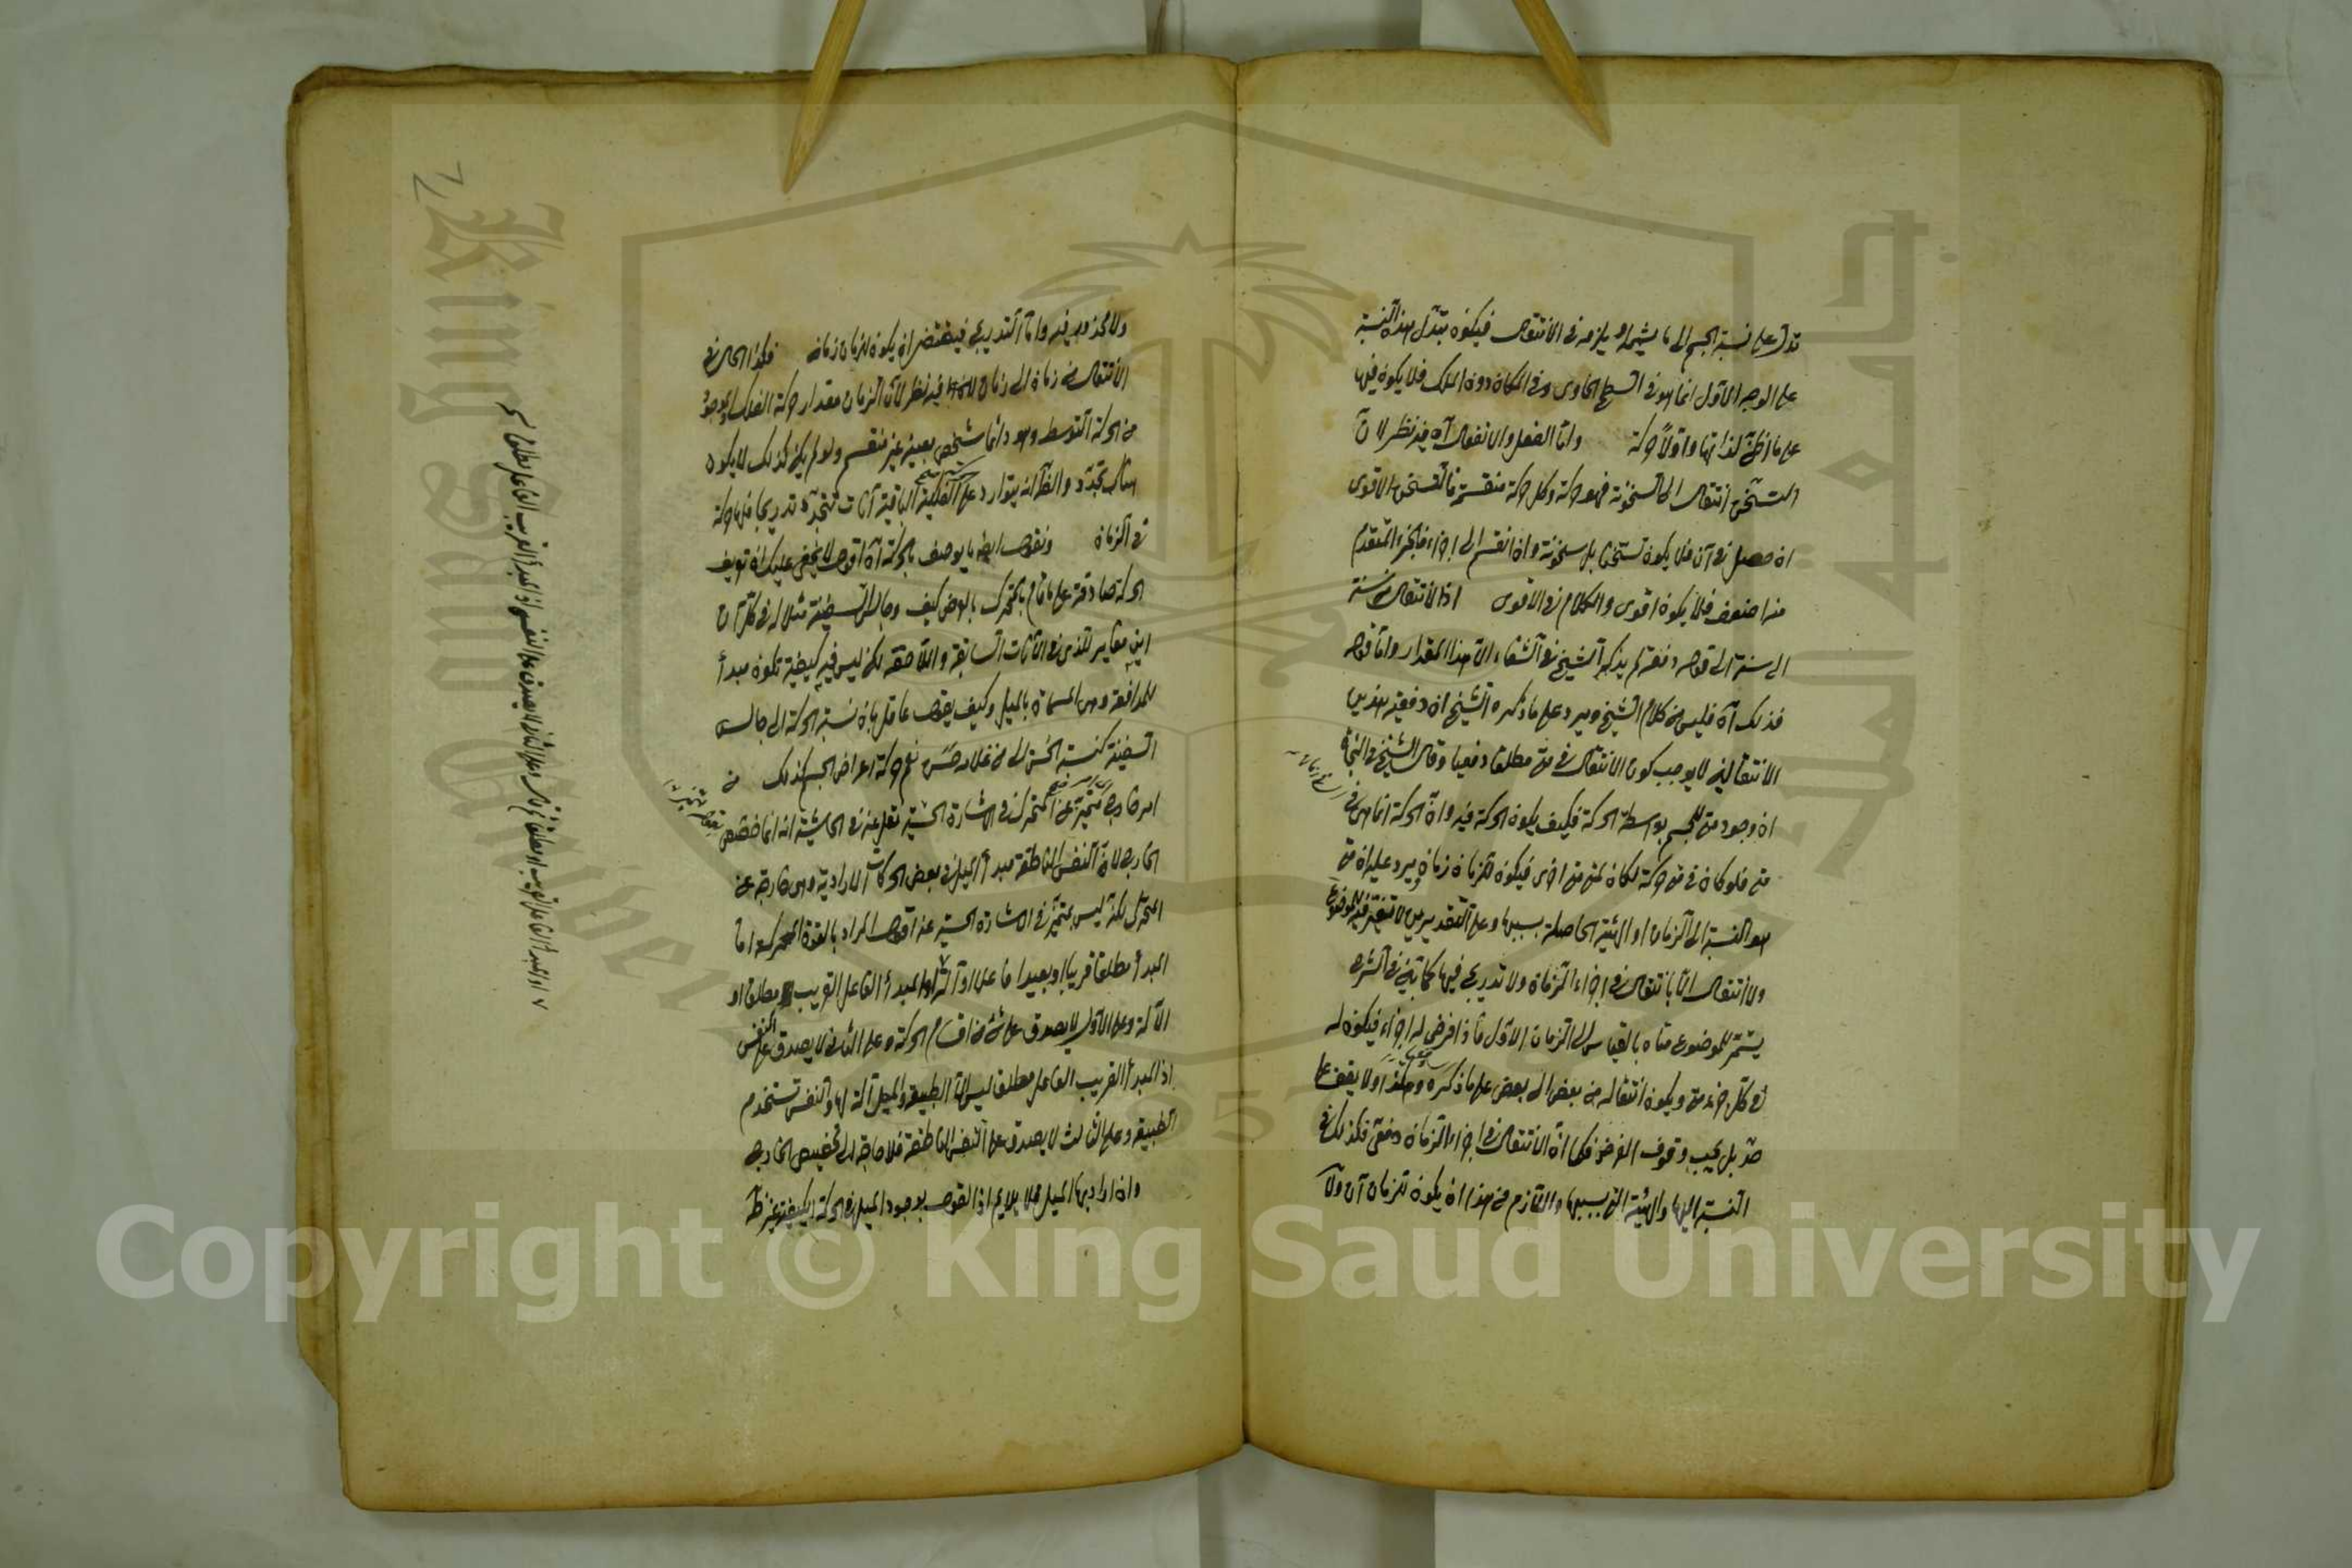 تدل على نسبة الجسم الى ما يشمله ويلزمه في الانتقال فيكون تبدل هذه النسبة
على الوجه الاول انما هو في السطح الحاوى وفى المكان دون الملك فلا يكون فيها
على ما اظن لذاتها واولا حركة وامّا الفعل والانفعال آه فيه نظر لان
التسخن انتقال الى السخونة فهو حركة وكل حركة منقسمة فالتسخن الاقوى
ان حصل في آن فلا يكون تسخنا بل سخونة وان انقسم الى اجزاء فالجزء المتقدم
منه اضعف فلا يكون اقوى والكلام في الاقوى اذ الانتقال من سنة
الى سنة الى قوله دفعة لم يذكر الشيخ في الشفاء الا هذا المقدار وامّا قوله
فذلك آه فليس من كلام الشيخ ويرد على ما ذكره الشيخ ان دفعية هذين
الانتقالين لا يوجب كون الانتقال في متى مطلقا دفعيا وقال الشيخ في النجاة
ان وجود متى للجسم بواسطة الحركة فكيف يكون الحركة فيه وان الحركة انما هى في
متى فلو كان في متى حركة لكان لمتى متى اخرى فيكون للزمان زمان ويرد عليه ان متى
هو النسبة الى الزمان او الهيئة الحاصلة بسببها وعلى التقديرين لا تتغير فيه الموضوع
ولا انتقال الا بانتقال في اجزاء الزمان ولا تدريج فيها كما بين في الشرح
يستمر للموضوع متاه بالقياس الى الزمان الاول فاذا فرض له اجزاء فيكون له
في كل جزء متى ويكون انتقاله من بعض الى بعض على ما ذكره وهكذا ولا يقف على
حد بل يجب وقوف الفرض فكما ان الانتقال في اجزاء الزمان دفعى فكذلك في
النسبة اليها والهيئة التى بسببها واللازم من هذا ان يكون للزمان آن ولا
ولا محذور فيه وامّا التدريج فيقتضى ان يكون للزمان زمان فكذا الحال في
الانتقال من زمان الى زمان فيه نظر لان الزمان مقدار حركة الفلك الموجود
من الحركة التوسط وهو دائما شخص بعينه غير منقسم ولو لم يكن كذلك لا يكون
هناك تجدد والظ انه يتوارد على الفلكية الباقية آنات تتجدد تدريجا فلها حركة
في الزمان ونقول ايضا ما يوصف بالحركة آه اقول لا يخفى عليك ان تعريف
الحركة صادقة على ما قام بالمتحرك بالعرض كيف وجالس السفينة مثلا له في كل آن
اين مغاير للذى في الآنات السابقة واللاحقة لكن ليس فيه كيفية تكون مبدأ
للمدافعة وهى المسماة بالميل وكيف يقول عاقل بان نسبة الحركة الى جالس
السفينة كنسبة الحسن الى من غلامه حسن نعم حركة اعراض الجسم كذلك من
امر خارج متميز عن المتحرك في الاشارة الحسية نقل عنه في الحاشية انه انما خصص
الخارج لان النفس الناطقة مبدأ الميل في بعض الحركات الارادية وهى خارجة عن
المتحرك لكنه ليس متميز في الاشارة الحسية عنه اقول المراد بالقوة المحركة اما
المبدأ مطلقا قريبا او بعيدا فاعلا او آلة او المبدأ الفاعل القريب مطلقا او
الآلة وعلى الاول لا يصدق على شئ من اقسام الحركة وعلى الثانى لا يصدق على النفس
اذ المبدأ القريب الفاعل مطلقا ليس الا الطبيعة والميل آلة لها والنفس تستخدم
الطبيعة وعلى الثالث لا يصدق على النفس الناطقة فلا حاجة الى تخصيص الخارج
وان اراد بها الميل فلا يلايم اذ القول بوجود الميل في الحركة الكيفية غير ظ
Copyright © King Saud University
King Saud University
1957